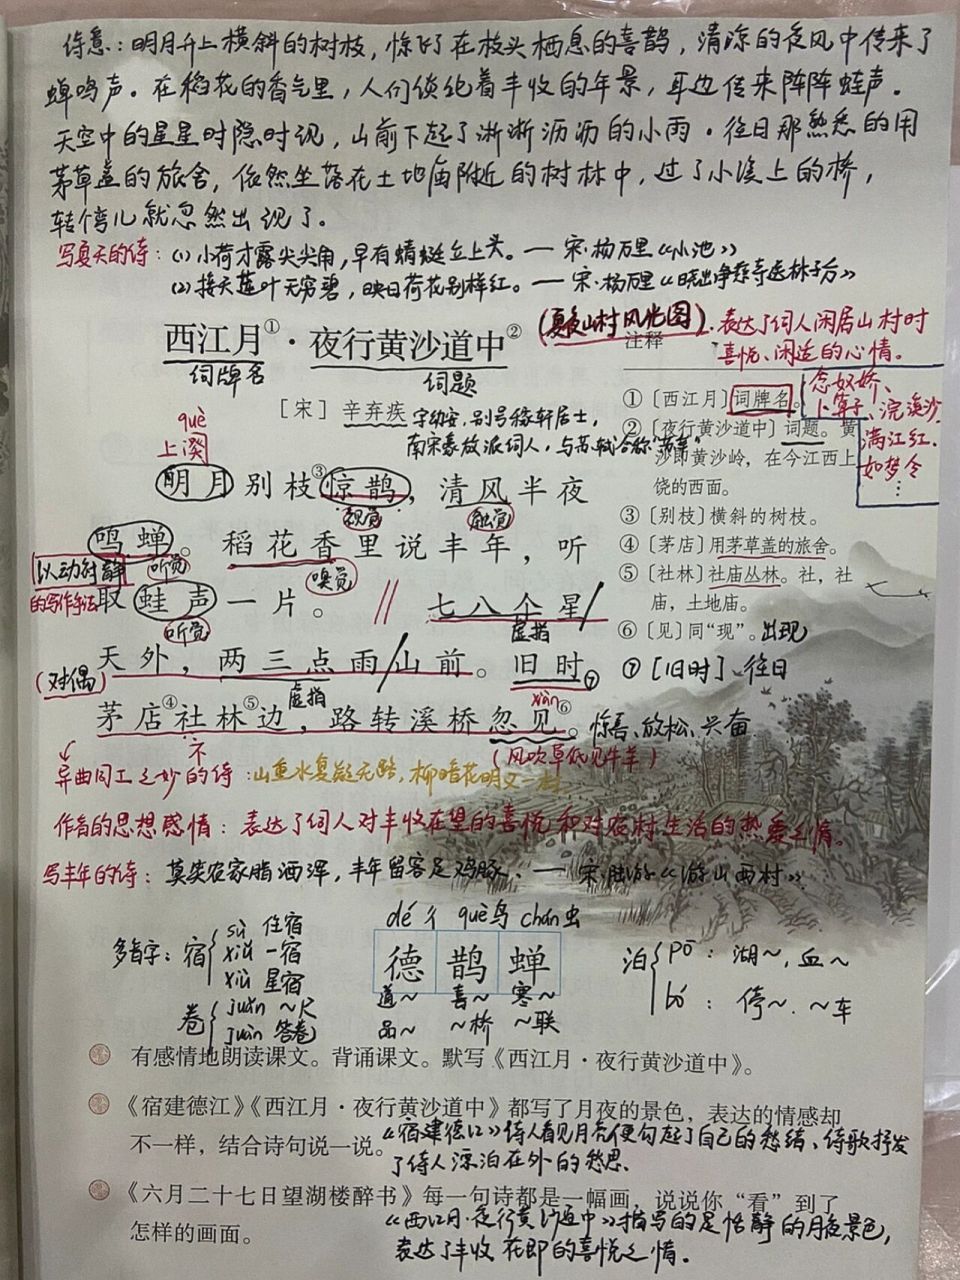 诗意：明月升上横斜的树枝，惊飞了在枝头栖息的喜鹊，清凉的夜风中传来了
蝉鸣声。在稻花的香气里，人们谈论着丰收的年景，耳边传来阵阵蛙声。
天空中的星星时隐时现，山前下起了淅淅沥沥的小雨。往日那熟悉的用
茅草盖的旅舍，依然坐落在土地庙附近的树林中，过了小溪上的桥，
转个弯儿就忽然出现了。
写夏天的诗：(1)小荷才露尖尖角，早有蜻蜓立上头。——宋·杨万里《小池》
(2)接天莲叶无穷碧，映日荷花别样红。——宋·杨万里《晓出净慈寺送林子方》
西江月①·夜行黄沙道中②
(夏夜山村风光图)
表达了词人闲居山村时
喜悦、闲适的心情。
词牌名
词题
注释
[宋] 辛弃疾 字幼安，别号稼轩居士，
南宋豪放派词人，与苏轼合称"苏辛"
què
上阕
明月别枝③惊鹊，清风半夜
视觉
触觉
鸣蝉。稻花香里说丰年，听
以动衬静
的写作手法
听觉
嗅觉
取蛙声一片。 // 七八个星/
听觉
虚指
天外，两三点雨/山前。旧时⑦
(对偶)
虚指
xiàn
茅店④社林⑤边，路转溪桥忽见⑥。
惊喜、放松、兴奋
(风吹草低见牛羊)
①〔西江月〕词牌名。
念奴娇、
卜算子、浣溪沙
满江红、
如梦令
…
②〔夜行黄沙道中〕词题。黄
沙即黄沙岭，在今江西上
饶的西面。
③〔别枝〕横斜的树枝。
④〔茅店〕用茅草盖的旅舍。
⑤〔社林〕社庙丛林。社，社
庙，土地庙。
⑥〔见〕同“现”。出现
⑦[旧时] 往日
异曲同工之妙的诗：山重水复疑无路，柳暗花明又一村。
作者的思想感情：表达了词人对丰收在望的喜悦和对农村生活的热爱之情。
写丰年的诗：莫笑农家腊酒浑，丰年留客足鸡豚。——宋·陆游《游山西村》
多音字：宿 sù 住宿
xiǔ 一宿
xiù 星宿
卷 juǎn ~尺
juàn 答卷
dé彳 què鸟 chán虫
德 鹊 蝉
道~ 喜~ 寒~
品~ ~桥 ~联
泊 pō：湖~，血~
bó：停~、~车
有感情地朗读课文。背诵课文。默写《西江月·夜行黄沙道中》。
《宿建德江》《西江月·夜行黄沙道中》都写了月夜的景色，表达的情感却
不一样，结合诗句说一说。
《宿建德江》诗人看见月亮便勾起了自己的愁绪、诗歌抒发
了诗人漂泊在外的愁思.
《六月二十七日望湖楼醉书》每一句诗都是一幅画，说说你“看”到了
怎样的画面。
《西江月·夜行黄沙道中》描写的是恬静的月夜景色，
表达了丰收在即的喜悦之情。